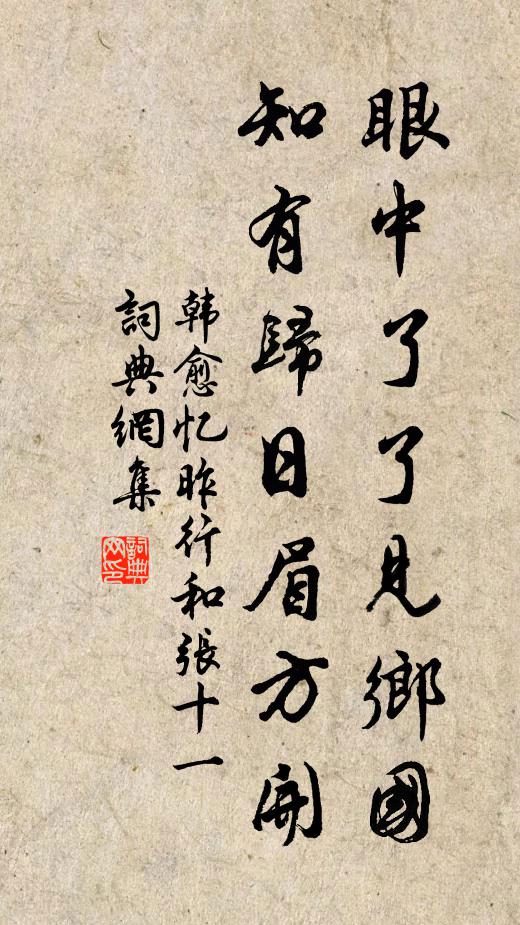 眼中了了見鄉國
知有歸日眉方開
韩愈忆昨行和張十一
詞典網集
詞典网印